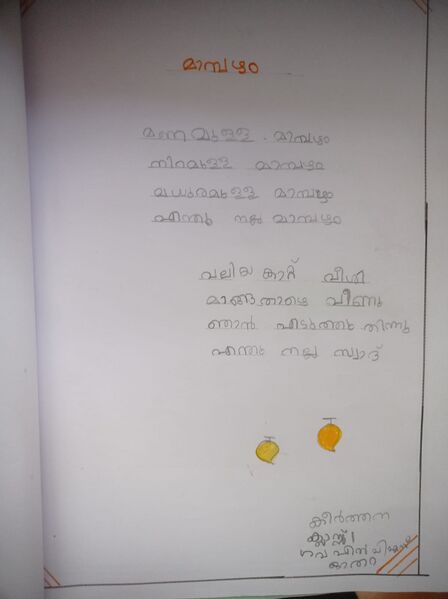 മാമ്പഴം
മണമുള്ള മാമ്പഴം
നിറമുള്ള മാമ്പഴം
മധുരമുള്ള മാമ്പഴം
എന്തു നല്ല മാമ്പഴം
വലിയ കാറ്റ് വീശി
മാങ്ങതാഴെ വീണു
ഞാൻ എടുത്തു തിന്നു
എന്തു നല്ല സ്വാദ്
കീർത്തന
ക്ലാസ്സ് 1